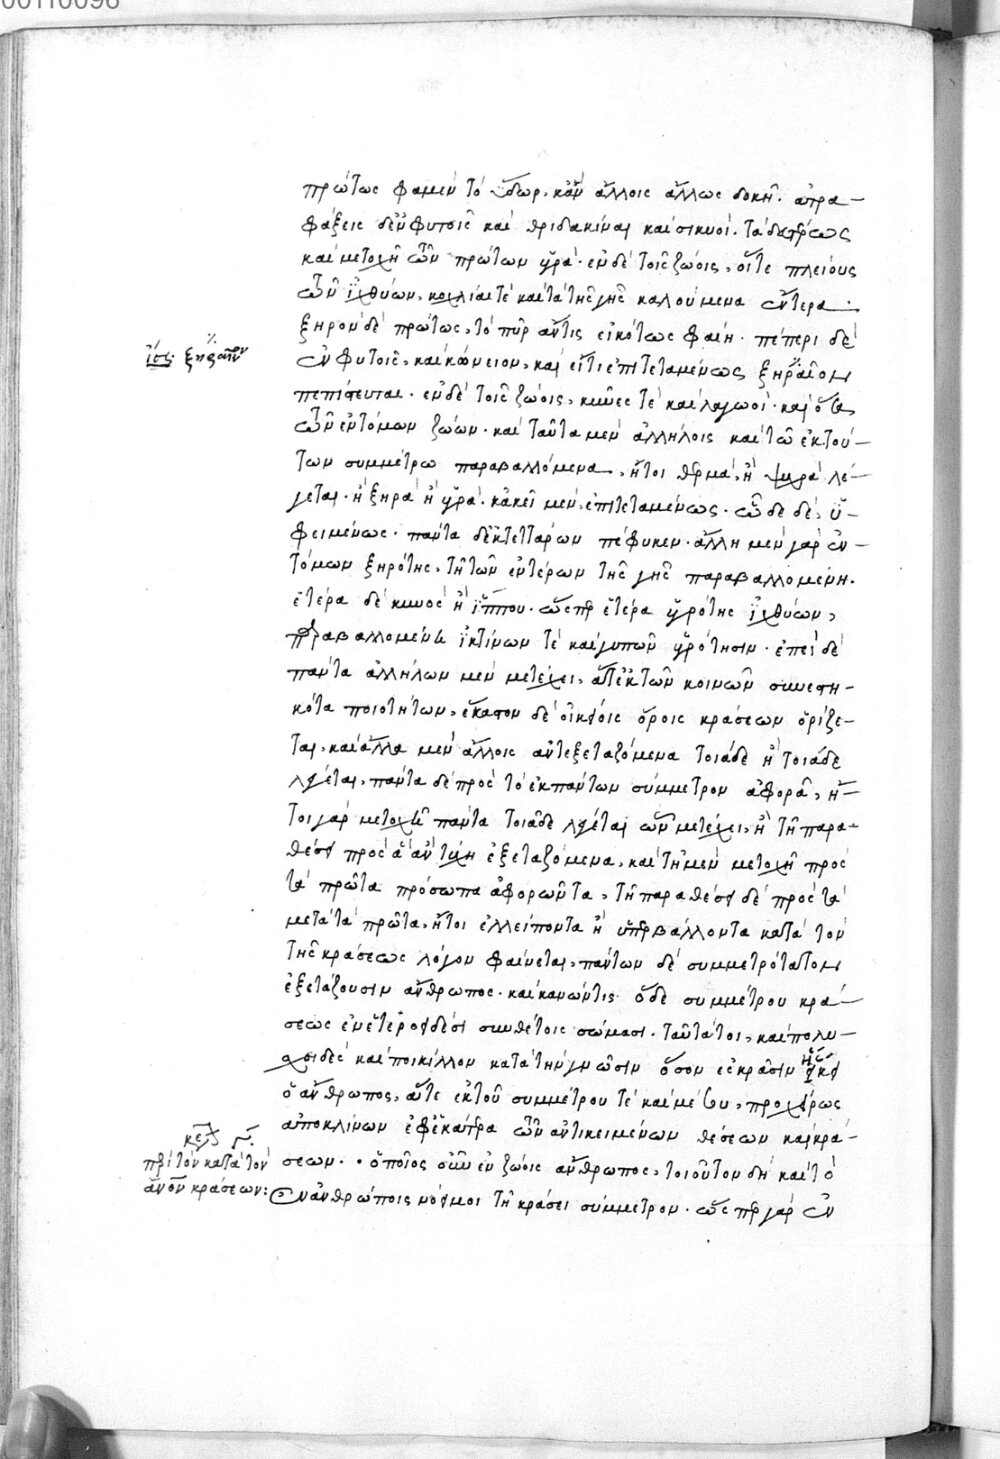 00110096
πρώτως φαμὲν τὸ ὕδωρ, κἂν ἄλλοις ἄλλως δοκῇ. ἀτρα-
φάξεις δ' ἐν φυτοῖς καὶ θριδακίναι καὶ σίκυοι. τὰ δευτέρως
καὶ μετοχῇ τῶν πρώτων ὑγρά. ἐν δὲ τοῖς ζώοις, οἵ τε πλείους
τῶν ἰχθύων, κοχλίαι τὲ καὶ τὰ τῆς γῆς καλούμενα ἔντερα.
ξηρὸν δὲ πρώτως, τὸ πῦρ ἄν τις εἰκότως φαίη. πέπερι δὲ
ἐν φυτοῖς, καὶ κώνειον, καὶ εἴ τι ἐπιτεταμένως ξηρᾶιον
πεπίστευται. ἐν δὲ τοῖς ζώοις, κύνες τὲ καὶ λαγωοί. καὶ ὅσα
τῶν ἐντόμων ζώων. καὶ ταῦτα μὲν ἀλλήλοις καὶ τῶ ἐκ τού-
των συμμέτρω παραβαλλόμενα, ἤτοι θερμὰ, ἢ ψυχρὰ λέ-
γεται. ἢ ξηρὰ ἢ ὑγρά. κἀκεῖ μὲν, ἐπιτεταμένως. ὧδε δὲ, ὑ-
φειμένως. πάντα δ' ἐκ τεττάρων πέφυκεν. ἄλλη μὲν γὰρ ἐν-
τόμων ξηρότης, τῇ τῶν ἐντέρων τῆς γῆς παραβαλλομένη.
ἑτέρα δὲ κυνὸς ἢ ἵππου. ὥσπερ ἑτέρα ὑγρότης ἰχθύων,
παραβαλλομένη ἰκτίνων τὲ καὶ γυπῶν ὑγρότησιν. ἐπεὶ δὲ
πάντα ἀλλήλων μὲν μετέχει, ἅτ' ἐκ τῶν κοινῶν συνεστη-
κότα ποιοτήτων, ἕκαστον δὲ οἰκείοις ὅροις κράσεων ὁρίζε-
ται, καὶ ἄλλα μὲν ἄλλοις ἀντεξεταζόμενα τοιάδε ἢ τοιάδε
λέγεται, πάντα δὲ πρὸς τὸ ἐκ πάντων σύμμετρον ἀφορᾶ, ἤ-
τοι γὰρ μετοχῇ πάντα τοιάδε λέγεται ὧν μετέχει, ἢ τῇ παρα-
θέσει πρὸς ἃ ἂν τύχη ἐξεταζόμενα, καὶ τῇ μὲν μετοχῇ πρὸς
τὰ πρῶτα πρόσωπα ἀφορῶντα, τῇ παραθέσει δὲ πρὸς τὰ
μετὰ τὰ πρῶτα, ἤτοι ἐλλείποντα ἢ ὑπερβάλλοντα κατὰ τὸν
τῆς κράσεως λόγον φαίνεται, πάντων δὲ συμμετρότατον
ἐξετάζουσιν ἄνθρωπος. καὶ κανών τις ὅδε συμμέτρου κρά-
σεως ἐν ἑτεροειδέσι συνθέτοις σώμασι. ταῦτά τοι, καὶ πολυ-
ειδὲς καὶ ποικίλλον κατὰ τὴν γνῶσιν ὅσον ἐς κρᾶσιν ἥκει
ὁ ἄνθρωπος, ἅτε ἐκ τοῦ συμμέτρου τὲ καὶ μέσου, προχείρως
ἀποκλίνων ἐφ' ἑκάτερα τῶν ἀντικειμένων θέσεων καὶ κρά-
σεων. ὁποῖος οὖν ἐν ζώοις ἄνθρωπος, τοιοῦτον δὴ καὶ τὸ
ἐν ἀνθρώποις νόει μοι τῇ κράσει σύμμετρον. ὥσπερ γὰρ ἐν
ἴσ. ξηραῖν
κεφ
περὶ τῶν κατὰ τὸν
ἄνον κράσεων: